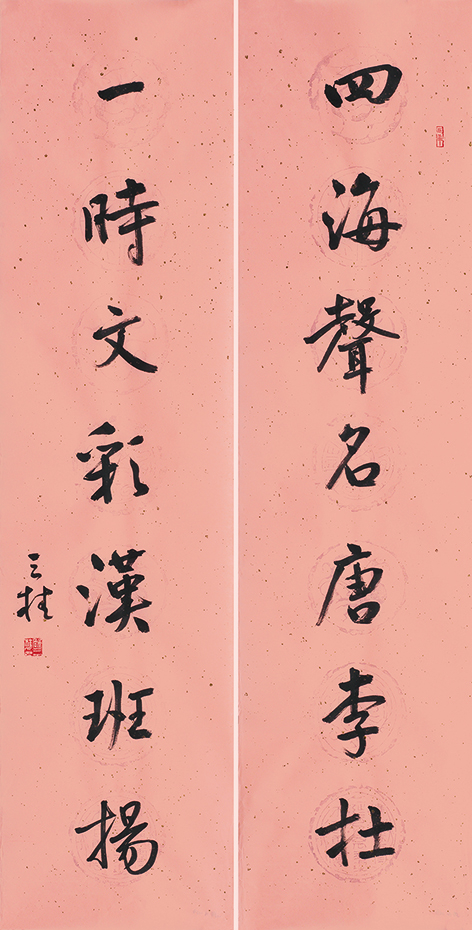 四海聲名唐李杜
一時文彩漢班揚